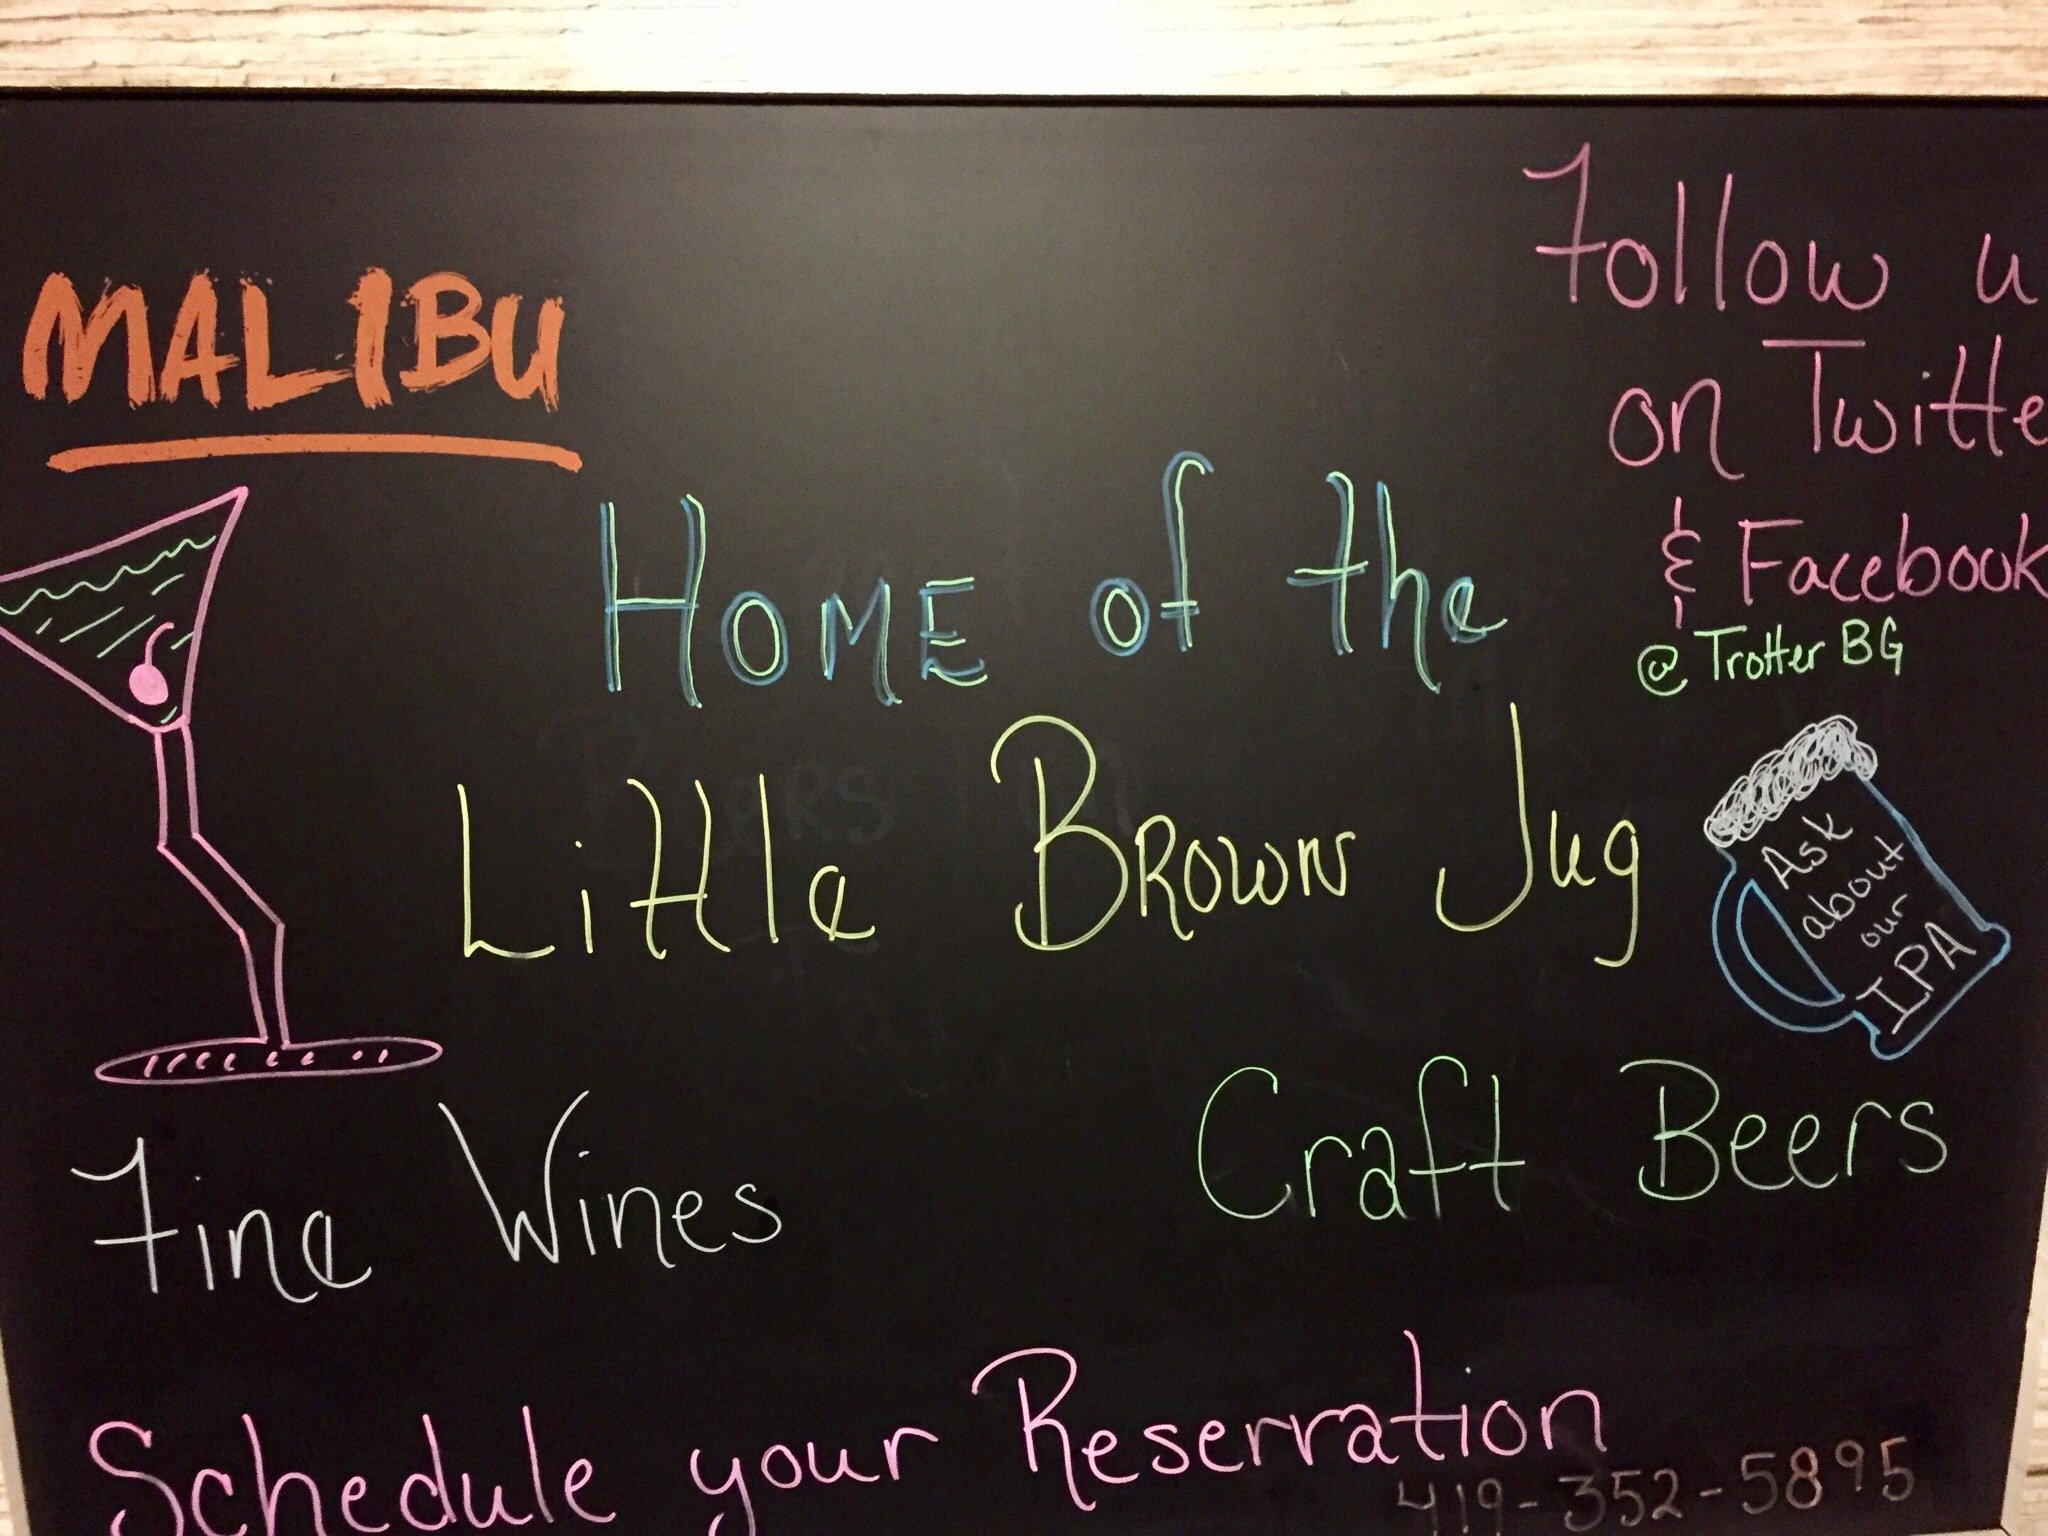 MALIBU
Follow u
on Twitte
& Facebook
@TrotterBG
Home of the
Little Brown Jug
Ask
about
our
IPA
Fine Wines
Craft Beers
Schedule your Reservation
419-352-5895